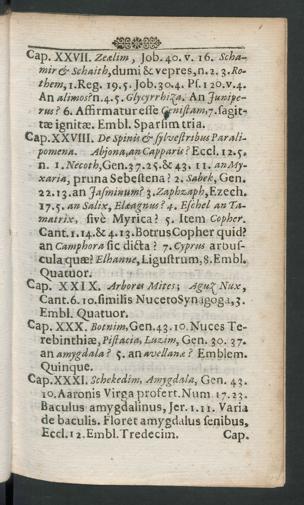 Cap. XXVII. Zeælim, Job. 40. v. 16. Scha-
mir & Schaith, dumi & vepres, n. 2. 3. Ro-
them, 1. Reg. 19. 5. Job. 30. 4. Ps. 120. v. 4.
An alimos? n. 4. 5. Glycyrrhiza. An Junipe-
rus? 6. Affirmatur esse Genistam, 7. sagit-
tæ ignitæ. Embl. Sparsim tria.
Cap. XXVIII. De Spinis & sylvestribus Parali-
pomena. Abjona, an Capparis? Eccl. 12. 5.
n. 1. Necoth, Gen. 37. 25. & 43. 11. an My-
xaria, pruna Sebestena? 2. Sabek, Gen.
22. 13. an Jasminum? 3. Zaphzaph, Ezech.
17. 5. an Salix, Elæagnus? 4. Eschel an Ta-
matrix, sivè Myrica? 5. Item Copher.
Cant. 1. 14. & 4. 13. Botrus Copher quid?
an Camphora sic dicta? 7. Cyprus arbus-
cula quæ? Elhanne, Ligustrum, 8. Embl.
Quatuor.
Cap. XXIX. Arbores Mites; Aguz Nux,
Cant. 6. 10. similis Nuceto Synagoga, 3.
Embl. Quatuor.
Cap. XXX. Botnim, Gen. 43. 10. Nuces Te-
rebinthiæ, Pistacia, Luzim, Gen. 30. 37.
an amygdala? 5. an avellanæ? Emblem.
Quinque.
Cap. XXXI. Schekedim, Amygdala, Gen. 43.
10. Aaronis Virga profert. Num 17. 23.
Baculus amygdalinus, Jer. 1. 11. Varia
de baculis. Floret amygdalus senibus,
Eccl. 12. Embl. Tredecim. Cap.